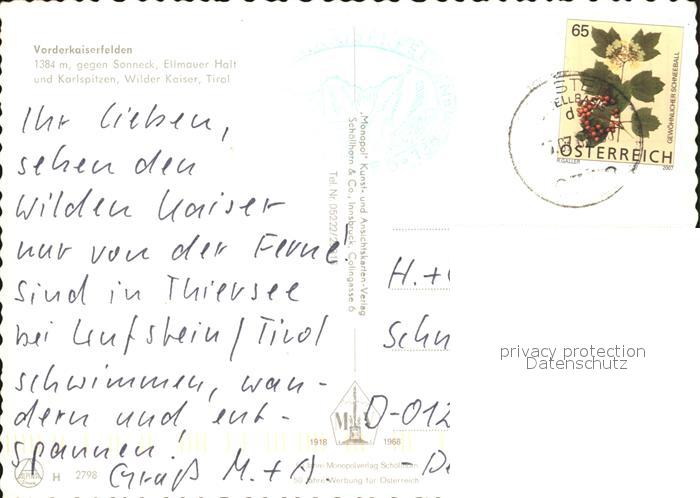 Vorderkaiserfelden
1384 m, gegen Sonneck, Ellmauer Halt
und Karlspitzen, Wilder Kaiser, Tirol
Ihr Lieben,
sehen den
Wilden Kaiser
nur von der Ferne!
Sind in Thiersee
bei Kufstein/Tirol
schwimmen, wan-
dern und ent-
spannen!
Gruß M. + A.
H 2798
"Monopol" Kunst- und Ansichtskarten-Verlag
Schöllhorn & Co., Innsbruck, Colingasse 6
Tel. Nr. 05222/2
1918 1968
Jahre Monopolverlag Schöllhorn
50 Jahre Werbung für Österreich
65
GEWÖHNLICHER SCHNEEBALL
ÖSTERREICH
GALLER 2007
H. +
Schn
D-012
-De
privacy protection
Datenschutz